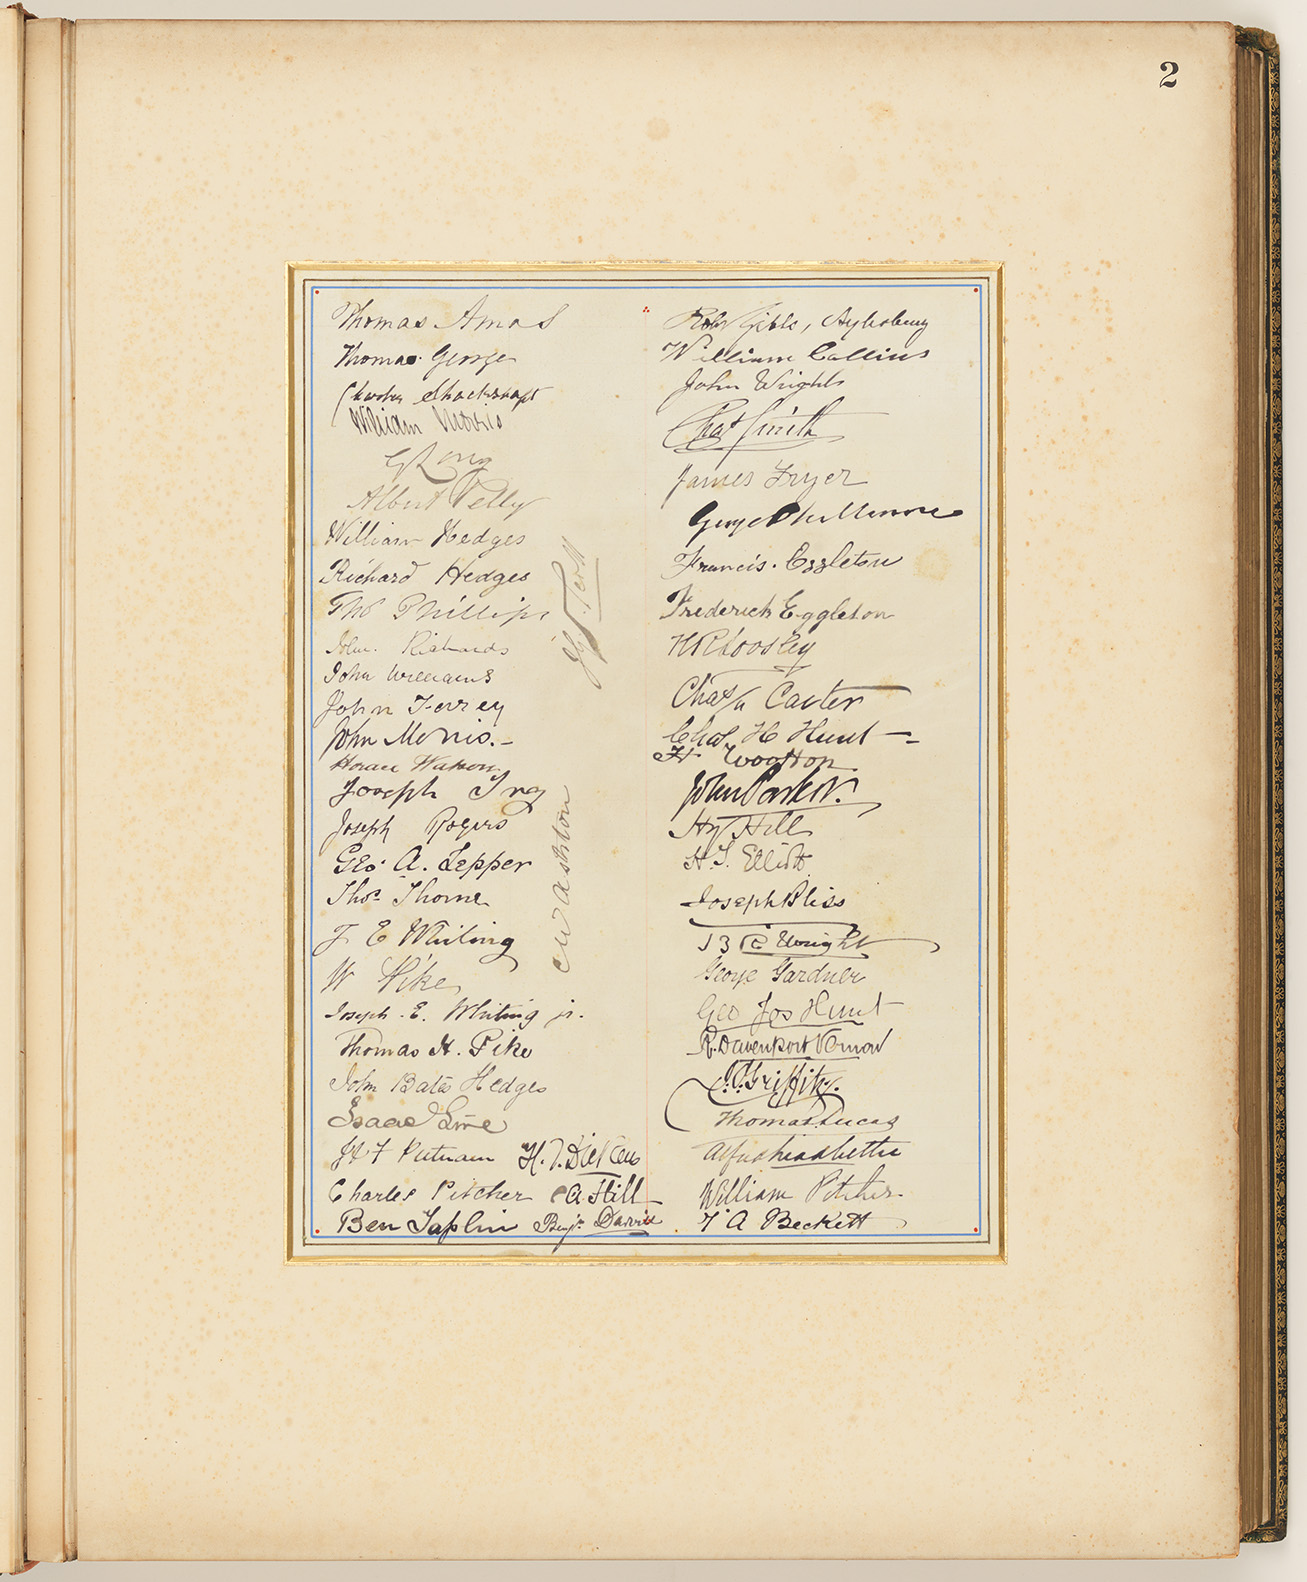 2
Thomas Amos
Thomas George
Charles Shackshaft
William Morris
G Long
Albert Pelly
William Hedges
Richard Hedges
Tho Phillips
John Richards
John Williams
John Torrey
John Morris.-
Horace Watson
Joseph Ivey
Joseph Rogers
Geo A. Lepper
Thos Thorne
J E Whiting
W Pike
Joseph . E. Whiting jr.
Thomas H. Pike
John Bates Hedges
Isaac Line
Putnam H. J. Dickens
Charles Pitcher A. Hill
Ben Taplin Benjn Darvill
C W Ashton
Robt Gibbs, Aylesbury
William Collins
John Wright
Chas Smith
James Fryer
George Phillimore
Francis. Eggleton
Frederick Eggleton
Chas Carter
Chas H Hunt
H Wootton
John Parker.
Hy Hill
H. J. Elliott
Joseph Bliss
Wright
George Gardner
Geo Jos Hunt
R. Davenport Vernon
J. C. Griffits.
Thomas Lucas
William Pitcher.
T A Beckett